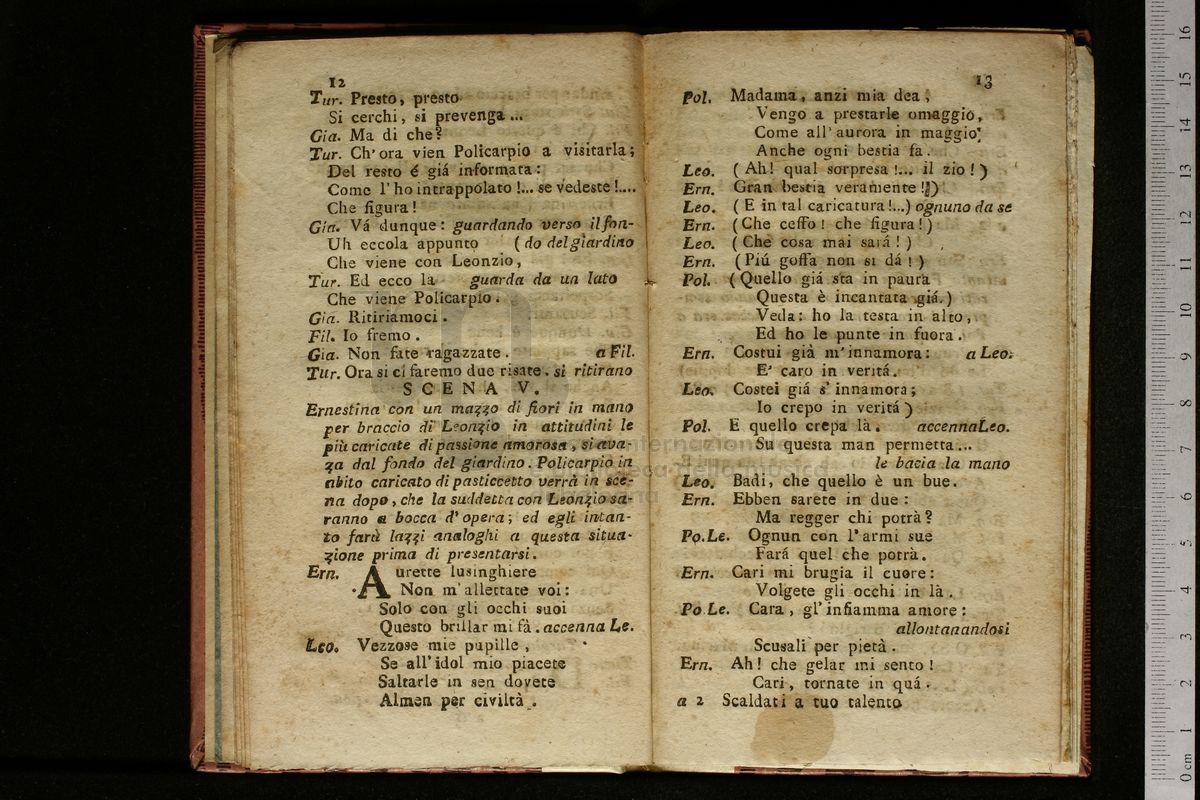 12
Tur. Presto, presto
Si cerchi, si prevenga ...
Gia. Ma di che?
Tur. Ch' ora vien Policarpio a visitarla;
Del resto é giá informata:
Come l' ho intrappolato !... se vedeste !....
Che figura!
Gia. Vá dunque: guardando verso il fon-
Uh eccola appunto ( do del giardino
Che viene con Leonzio,
Tur. Ed ecco la guarda da un lato
Che viene Policarpio.
Gia. Ritiriamoci.
Fil. Io fremo.
Gia. Non fate ragazzate. a Fil.
Tur. Ora si ci faremo due risate. si ritirano
SCENA V.
Ernestina con un mazzo di fiori in mano
per braccio di Leonzio in attitudini le
più caricate di passione amorosa, si ava-
za dal fondo del giardino. Policarpio in
abito caricato di pasticcetto verrà in sce-
na dopo, che la suddetta con Leonzio sa-
ranno a bocca d' opera; ed egli intan-
to farà lazzi analoghi a questa situa-
zione prima di presentarsi.
Ern. Aurette lusinghiere
Non m' allettate voi:
Solo con gli occhi suoi
Questo brillar mi fà. accenna Le.
Leo. Vezzose mie pupille,
Se all' idol mio piacete
Saltarle in sen dovete
Almen per civiltà.
13
Pol. Madama, anzi mia dea,
Vengo a prestarle omaggio,
Come all' aurora in maggio
Anche ogni bestia fa.
Leo. ( Ah! qual sorpresa !... il zio! )
Ern. Gran bestia veramente !)
Leo. ( E in tal caricatura !...) ognuno da se
Ern. (Che ceffo! che figura!)
Leo. ( Che cosa mai sará! )
Ern. (Piú goffa non si dá! )
Pol. ( Quello giá sta in paura
Questa è incantata giá.)
Veda: ho la testa in alto,
Ed ho le punte in fuora.
Ern. Costui già m' innamora: a Leo.
E' caro in veritá.
Leo. Costei giá s' innamora;
Io crepo in veritá )
Pol. E quello crepa là. accenna Leo.
Su questa man permetta...
le bacia la mano
Leo. Badi, che quello è un bue.
Ern. Ebben sarete in due:
Ma regger chi potrà?
Po. Le. Ognun con l' armi sue
Fará quel che potrà.
Ern. Cari mi brugia il cuore:
Volgete gli occhi in là.
Po. Le. Cara, gl' infiamma amore:
allontanandosi
Scusali per pietà.
Ern. Ah! che gelar mi sento!
Cari, tornate in quá.
a 2 Scaldati a tuo talento